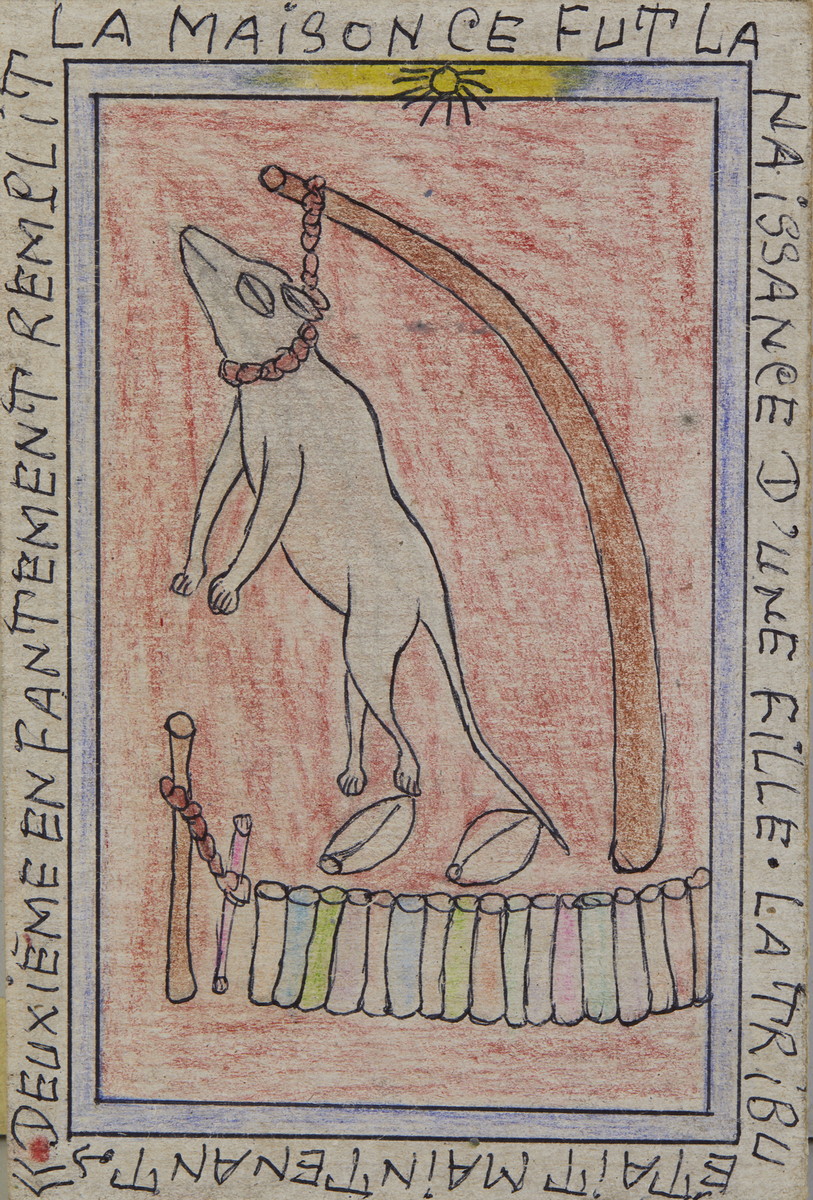 «DEUXIÈME ENFANTEMENT REMPLIT
LA MAISON CE FUT LA
NAISSANCE D'UNE FILLE. LA TRIBU
ETAIT MAINTENANT.